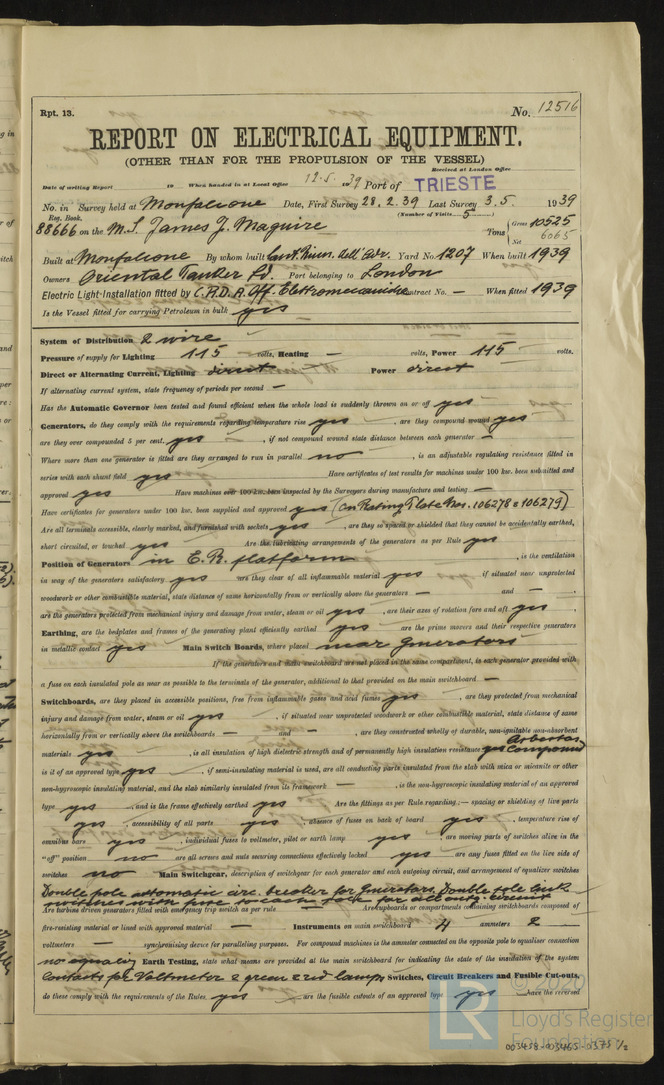 Rpt. 13.
No. 12516
REPORT ON ELECTRICAL EQUIPMENT.
(OTHER THAN FOR THE PROPULSION OF THE VESSEL)
Received at London Office
Date of writing Report 19 When handed in at Local Office 12.5. 1939 Port of TRIESTE
No. in Survey held at Monfalcone Date, First Survey 28.2.39 Last Survey 3.5. 1939
Reg. Book. (Number of Visits 5)
88666 on the M.S. James J. Maguire Tons Gross 10525
Net 6065
Built at Monfalcone By whom built Cant. Riun. dell' Adr. Yard No. 1207 When built 1939
Owners Oriental Tanker Ld. Port belonging to London
Electric Light Installation fitted by C.R.D.A. Off. Elettromeccaniche Contract No. — When fitted 1939
Is the Vessel fitted for carrying Petroleum in bulk yes
System of Distribution 2 wire
Pressure of supply for Lighting 115 volts, Heating — volts, Power 115 volts.
Direct or Alternating Current, Lighting direct Power direct
If alternating current system, state frequency of periods per second —
Has the Automatic Governor been tested and found efficient when the whole load is suddenly thrown on or off yes
Generators, do they comply with the requirements regarding temperature rise yes, are they compound wound yes
are they over compounded 5 per cent. yes, if not compound wound state distance between each generator —
Where more than one generator is fitted are they arranged to run in parallel no, is an adjustable regulating resistance fitted in
series with each shunt field yes Have certificates of test results for machines under 100 kw. been submitted and
approved yes Have machines over 100 kw. been inspected by the Surveyors during manufacture and testing —
Have certificates for generators under 100 kw. been supplied and approved yes (On Rating Plate Nos. 106278 & 106279)
Are all terminals accessible, clearly marked, and furnished with sockets yes, are they so spaced or shielded that they cannot be accidentally earthed,
short circuited, or touched yes Are the lubricating arrangements of the generators as per Rule yes
Position of Generators in E.R. platform, is the ventilation
in way of the generators satisfactory yes are they clear of all inflammable material yes, if situated near unprotected
woodwork or other combustible material, state distance of same horizontally from or vertically above the generators — and —,
are the generators protected from mechanical injury and damage from water, steam or oil yes, are their axes of rotation fore and aft yes
Earthing, are the bedplates and frames of the generating plant efficiently earthed yes are the prime movers and their respective generators
in metallic contact yes Main Switch Boards, where placed near generators
If the generators and main switchboard are not placed in the same compartment, is each generator provided with
a fuse on each insulated pole as near as possible to the terminals of the generator, additional to that provided on the main switchboard —
Switchboards, are they placed in accessible positions, free from inflammable gases and acid fumes yes, are they protected from mechanical
injury and damage from water, steam or oil yes, if situated near unprotected woodwork or other combustible material, state distance of same
horizontally from or vertically above the switchboards — and —, are they constructed wholly of durable, non-ignitable non-absorbent
materials yes, is all insulation of high dielectric strength and of permanently high insulation resistance yes compound
is it of an approved type yes, if semi-insulating material is used, are all conducting parts insulated from the slab with mica or micanite or other
non-hygroscopic insulating material, and the slab similarly insulated from its framework —, is the non-hygroscopic insulating material of an approved
type yes, and is the frame effectively earthed yes Are the fittings as per Rule regarding:— spacing or shielding of live parts
yes, accessibility of all parts yes, absence of fuses on back of board yes, temperature rise of
omnibus bars yes, individual fuses to voltmeter, pilot or earth lamp yes, are moving parts of switches alive in the
"off" position no are all screws and nuts securing connections effectively locked yes are any fuses fitted on the live side of
switches no Main Switchgear, description of switchgear for each generator and each outgoing circuit, and arrangement of equalizer switches
Double pole automatic circ. breaker for generators. Double pole link
switches with fuse to each pole for all outg. circuit
Are turbine driven generators fitted with emergency trip switch as per rule — Are cupboards or compartments containing switchboards composed of
fire-resisting material or lined with approved material — Instruments on main switchboard 4 ammeters 2
voltmeters — synchronising device for paralleling purposes. For compound machines is the ammeter connected on the opposite pole to equaliser connection
no equaliser Earth Testing, state what means are provided at the main switchboard for indicating the state of the insulation of the system
Contacts for Voltmeter 2 green 2 red lamps Switches, Circuit Breakers and Fusible Cut-outs,
do these comply with the requirements of the Rules, yes are the fusible cutouts of an approved type yes have the reversed
© 2020
LR
Lloyd's Register
Foundation
003458-003465-0375 1/2